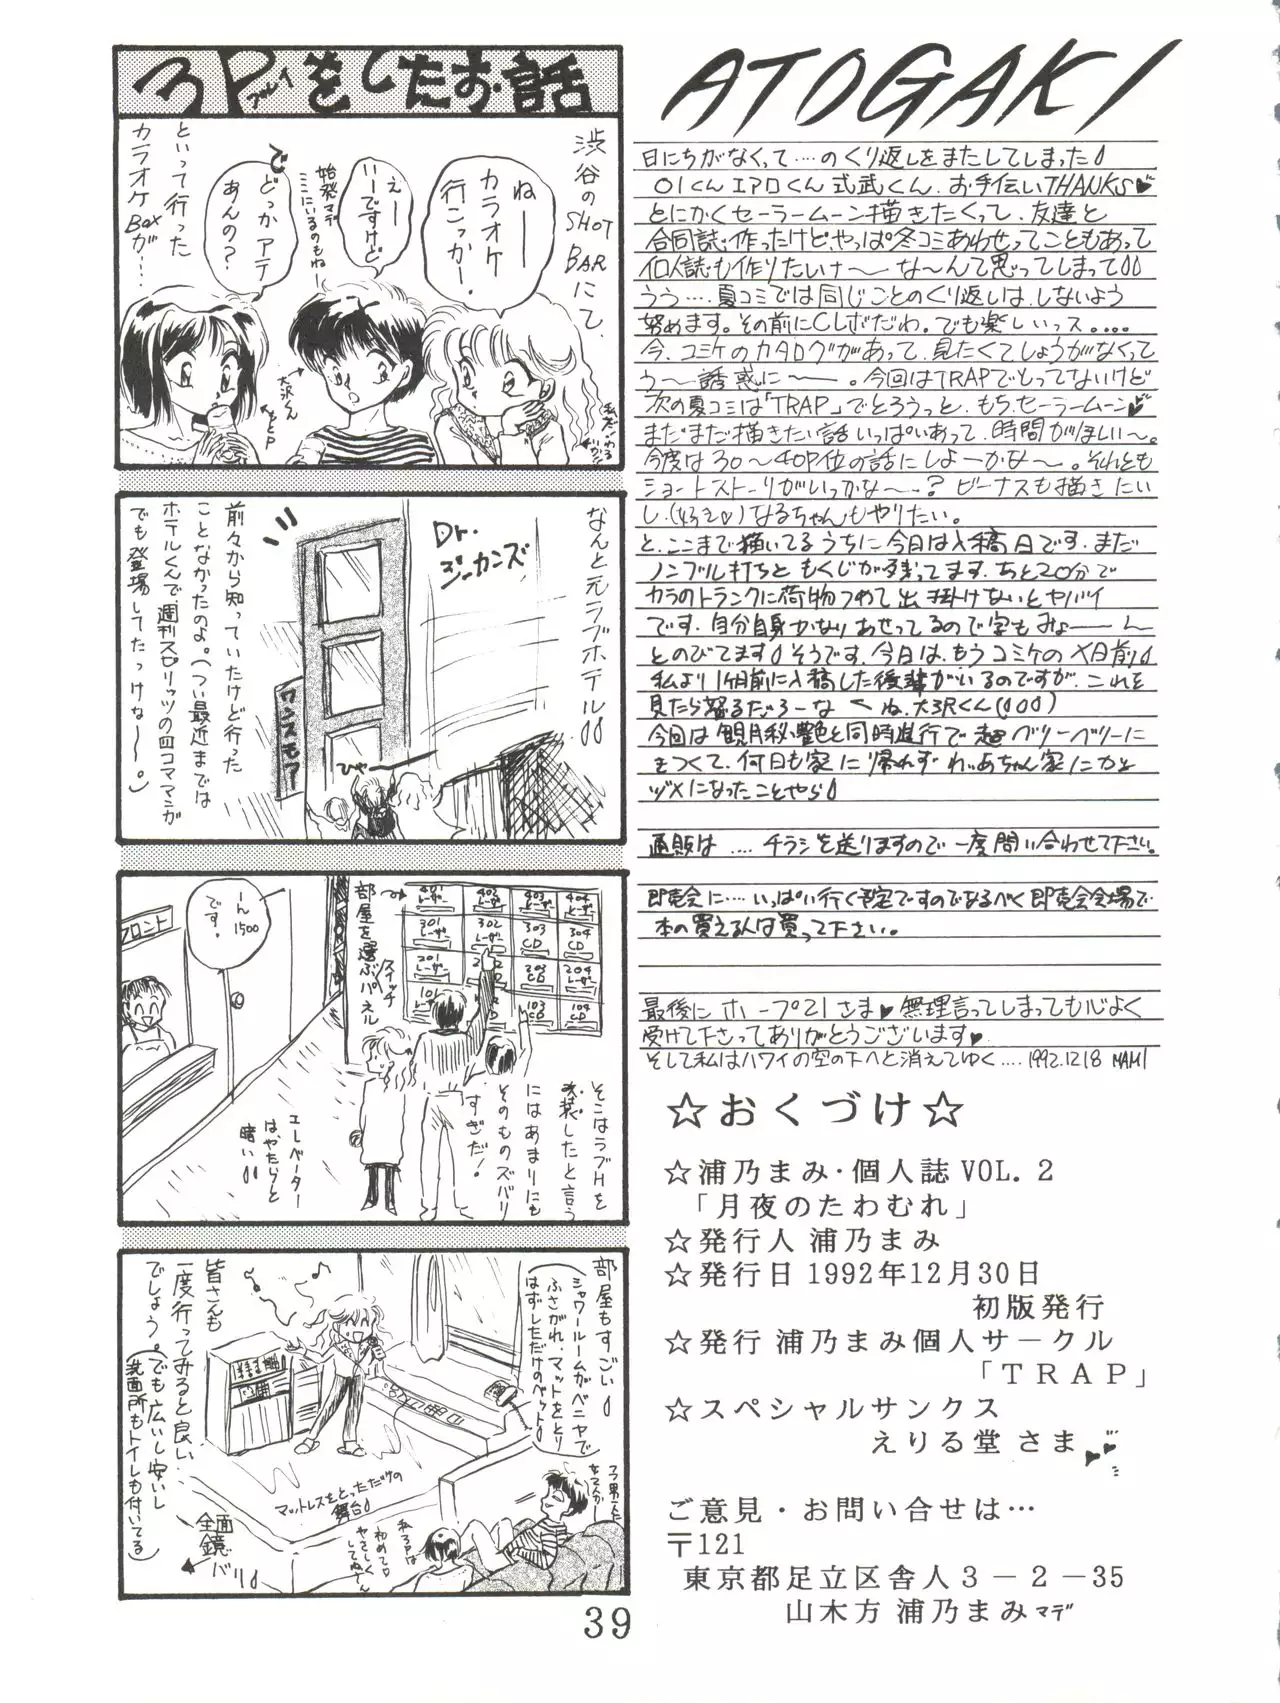 3Pプレイをしたお話
渋谷のSHOT BARにて、
ねー
カラオケ
行こっかー
えー
いーですけど
始発マデ
ここにいるのもねー
でどっかアテ
あんの？
大沢くん
といって行った
カラオケBoxが…
なんと元ラブホテル
Dr.
ジーカンズ
ひゃー
前々から知っていたけど行った
ことなかったのよ。(つい最近までは
ホテルくんで、週刊スピリッツの四コママンガ
でも登場してたっけなー。)
フロント
1500
です。
部屋を選ぶパネル
スイッチ
401 レーザー
402 レーザー
403 レーザー
404 レーザー
301 レーザー
302 レーザー
303 CD
304 CD
203 CD
204 CD
101 レーザー
103 CD
104 CD
そこはラブHを
改装したと言う
にはあまりにも
そのものズバリ
すぎだ！
エレベーター
は、やたらと
暗い
部屋もすごい
シャワールームがベニヤで
ふさがれ、マットをとり
はずしただけのベット
皆さんも
一度行ってみると良い
でしょう。(でも広いし安いし
洗面所もトイレも付いてる)
マットレスをとっただけの
舞台
全面
鏡
バリ
39
ATOGAKI
日にちがなくって……のくり返しをまたしてしまった
OIくんエアロくん式武くん、お手伝いTHANKS♥
とにかくセーラームーン描きたくって、友達と
合同誌作ったけどやっぱ冬コミあわせってこともあって
個人誌も作りたいナ〜〜な〜んて思ってしまって
うう…夏コミでは同じことのくり返しは、しないよう
努めます。その前にCレボだわ。でも楽しいっス。…
今、コミケのカタログがあって、見たくてしょうがなくって
う〜誘惑に〜〜。今回はTRAPでとってないけど
次の夏コミは「TRAP」でとろうっと、もち、セーラームーン♥
まだまだ描きたい話いっぱいあって、時間がほしい〜。
今度は30〜40P位の話にしよーかな〜。それとも
ショートストーリがいっかな〜？ビーナスも描きたい
し、(好き♡)なるちゃんもやりたい。
と、ここまで描いてるうちに今日は入稿日です。まだ
ノンブル打ちと もくじが残ってます、あと20分で
カラのトランクに荷物つめて出掛けないとヤバイ
です、自分自身かなりあせってるので字もみょーーん
とのびてます そうです、今日は、もうコミケの×日前
私より1ヶ月前に入稿した後輩がいるのですが、これを
見たら怒るだろーな ぬ、大沢くん
今回は観月秘艶と同時進行で超ベリーベリーに
きつくて、何日も家に帰れずれいあちゃん家にカン
ヅメになったことやら
通販は…チラシを送りますので一度問い合わせて下さい。
即売会に…いっぱい行く予定ですのでなるべく即売会会場で
本の買える人は買って下さい。
最後に ホープ21さま♥無理言ってしまっても心よく
受けて下さってありがとうございます♥
そして私はハワイの空の下へと消えてゆく…1992.12.18 MAMI
☆おくづけ☆
☆浦乃まみ・個人誌VOL. 2
「月夜のたわむれ」
☆発行人 浦乃まみ
☆発行日 1992年12月30日
初版発行
☆発行 浦乃まみ個人サークル
「TRAP」
☆スペシャルサンクス
えりる堂 さま
ご意見・お問い合せは…
〒121
東京都足立区舎人3－2－35
山木方 浦乃まみマデ